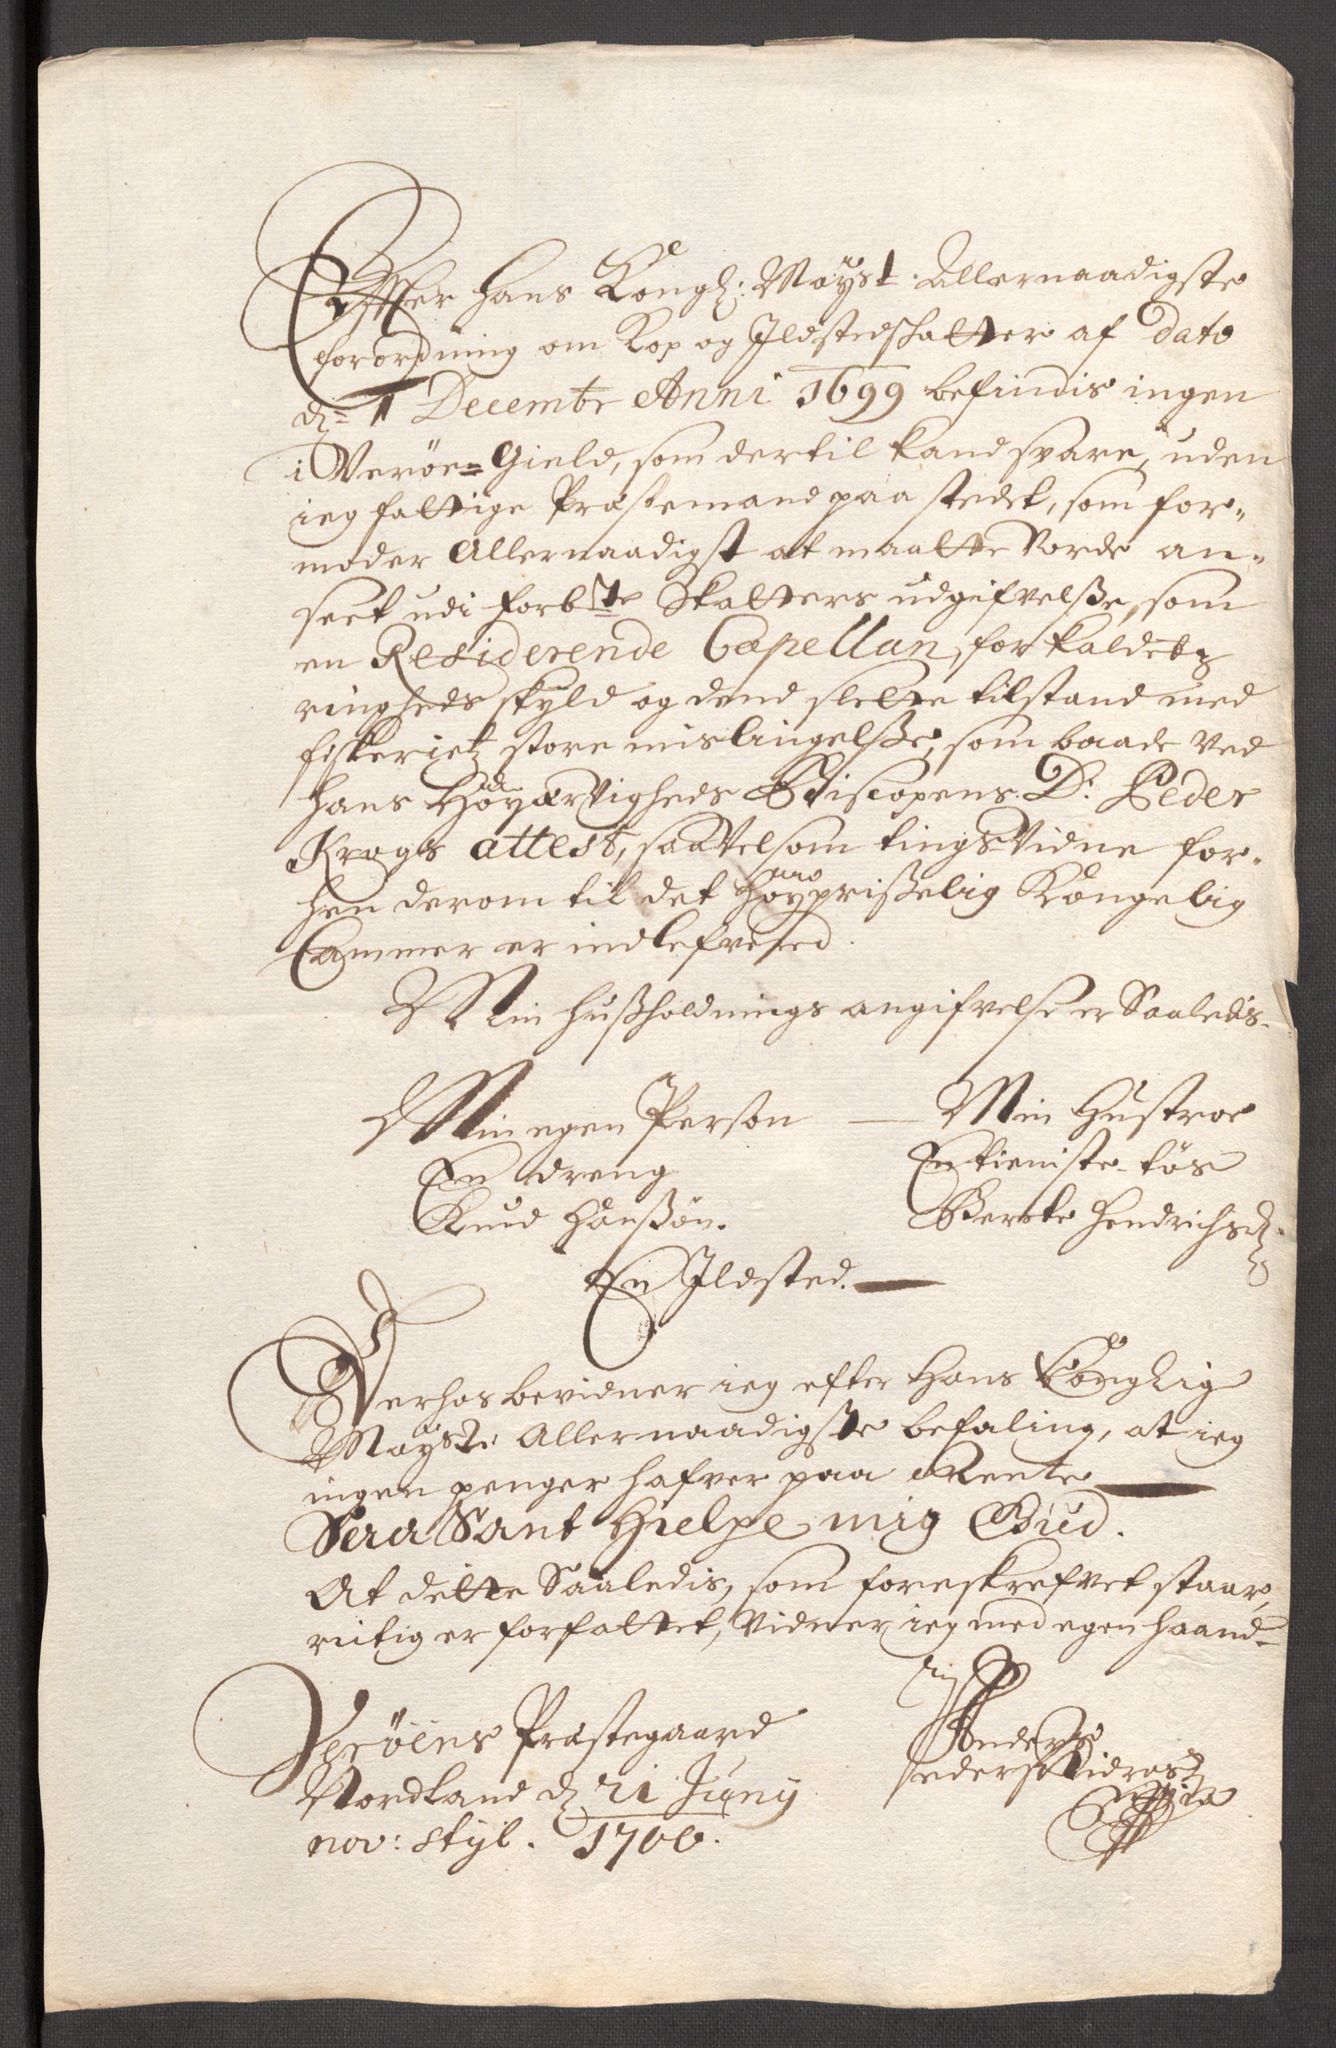 Effter Hans Kongl: Mayst: Allernaadigste
forordning om Kop og Ildstedschatter af Dato
d= 1 Decembr Anni 1699 befindis ingen
i Weröe= Gield, som dertil kand svare, uden
ieg fattige Præstemand paa stedet, som for-
moder Allernaadigst at maatte vorde an-
seet udi forbte Skatters udgifvelsse, som
en Residerende Capellan, for kaldetz
ringheds skyld og dend slette tilstand med
fiskerietz store mislingelsse, som baade ved
Hans Höyærvigheds Biscopens D: Peder
Krogs attest, saavelsom tingsvidne for-
hen derom til det höyprisselig Kongelig
Cammer er indlefvered.
Min hussholdnings angifvelse er Saaledis.
Min egen Person — Min Hustroe
En dreng En tieniste-tös
Knud Hanssön. Berete Hendrichsd
En Ildsted.
Derhos bevidner ieg efter Hans Konglig
Maystz Allernaadigste befaling, at ieg
ingen penger hafver paa Rente
Saa Sant Hielpe mig Gud.
At dette Saaledis, som foreskrefvet staar,
rictig er forfattet, vidner ieg med egen haand
Veröens Præstegaard Anders
Nordland d 21 Juny Pedersen Nidrosz
nov: styl. 1700.